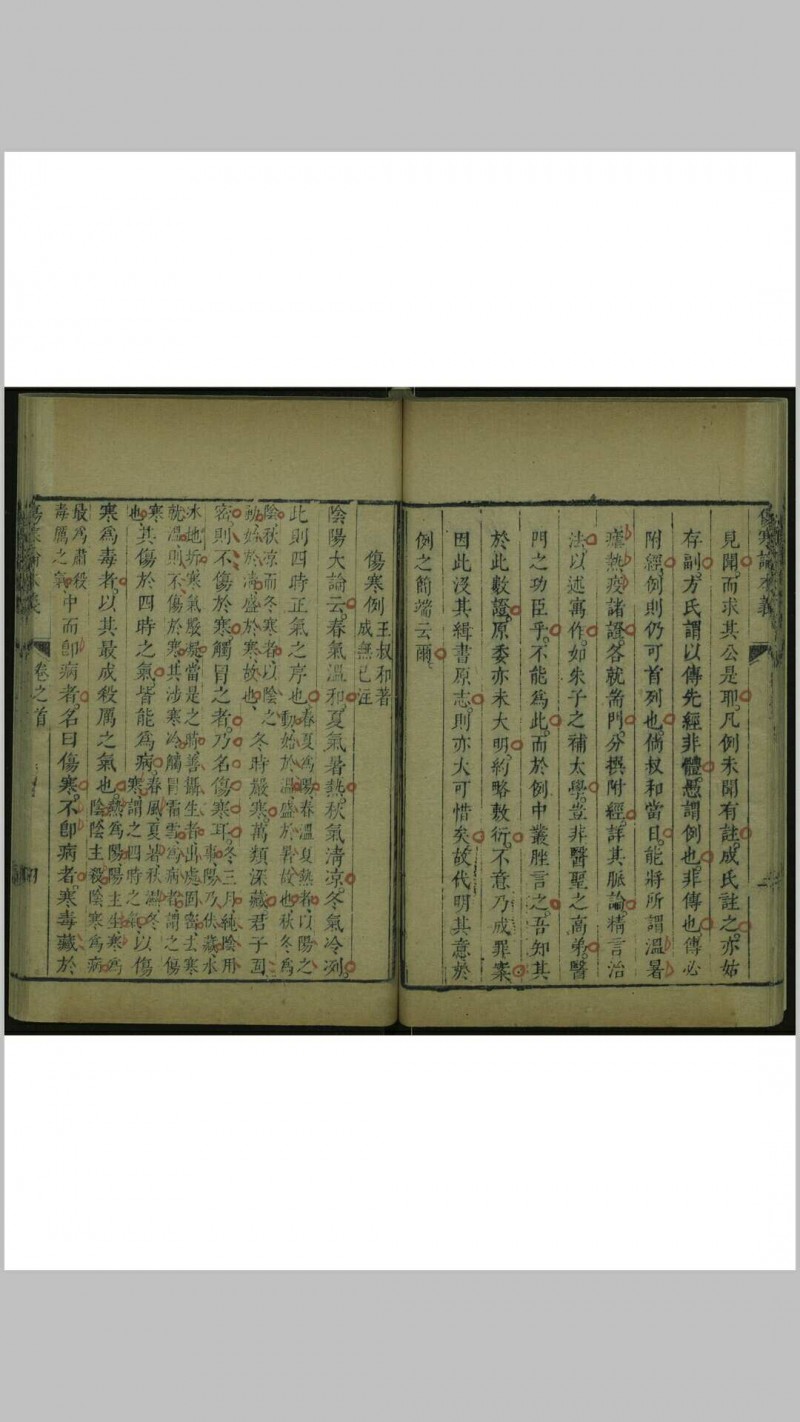 傷寒論本義
見聞而求其公是耶。凡例未聞有註。成氏註之。亦姑
存副。方氏謂以傳先經非體。愚謂例也。非傳也。傳必
附經。例則仍可首列也。倘叔和當日。能將所謂溫暑
瘧熱疫諸證。各就耑門。分撰附經。詳其脈論。精言治
法。以述寓作。如朱子之補太學。豈非醫聖之高弟。醫
門之功臣乎。不能爲此。而於例中叢脞言之。吾知其
於此數證。原委亦未大明。約略敷衍。不意乃成罪案。
因此沒其緝書原志。則亦大可惜矣。故代明其意於
例之簡端云爾。
傷寒例
王叔和著
成無已註
陰陽大論云。春氣溫和。夏氣暑熱。秋氣清凉。冬氣冷冽。
此則四時正氣之序也。
春夏爲陽、春溫夏熱者、以陽之
動始於溫、盛於暑故也、秋冬爲
陰、秋凉而冬寒者、以陰之
動、始於清、盛於寒故也、
冬時嚴寒。萬類深藏。君子固
密。則不傷於寒。觸冒之者。乃名傷寒耳。
冬三月純陰用
事、陽乃伏藏、水
冰地坼、寒氣嚴凝、當是之時、善攝生者、出處固密、去寒
就溫、則不傷於寒、其涉寒冷、觸冒霜雪爲病者、謂之傷
寒
也、
其傷於四時之氣。皆能爲病。
春風夏暑、秋濕冬
寒、謂之四時之氣、
以傷
寒爲毒者。以其最成殺厲之氣也。
熱爲陽、陽主生、寒爲
陰、陰主殺、陰寒爲病、
最爲肅殺
毒厲之氣、
中而卽病者。名曰傷寒。不卽病者。寒毒藏於
傷寒論本義
卷之首